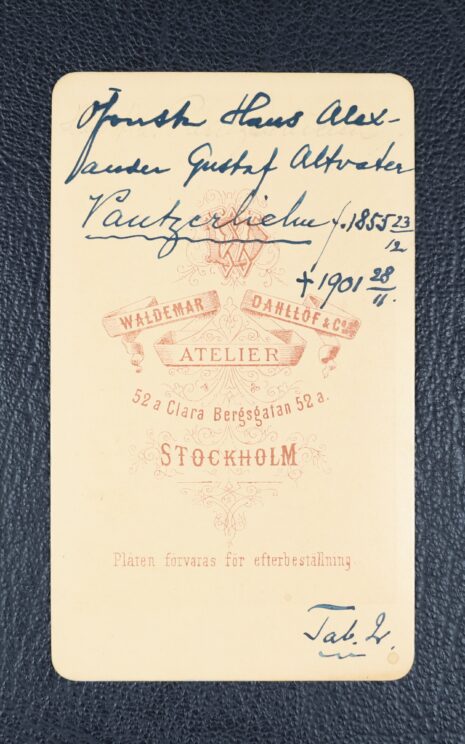 Öfversten Hans Alex-
ander Gustaf Altvater
Pantzerhielm f. 1855 23/12
† 1901 28/11.
WALDEMAR DAHLLÖF & Co
ATELIER
52 a Clara Bergsgatan 52 a.
STOCKHOLM
Plåten förvaras för efterbeställning.
Tab. 2.